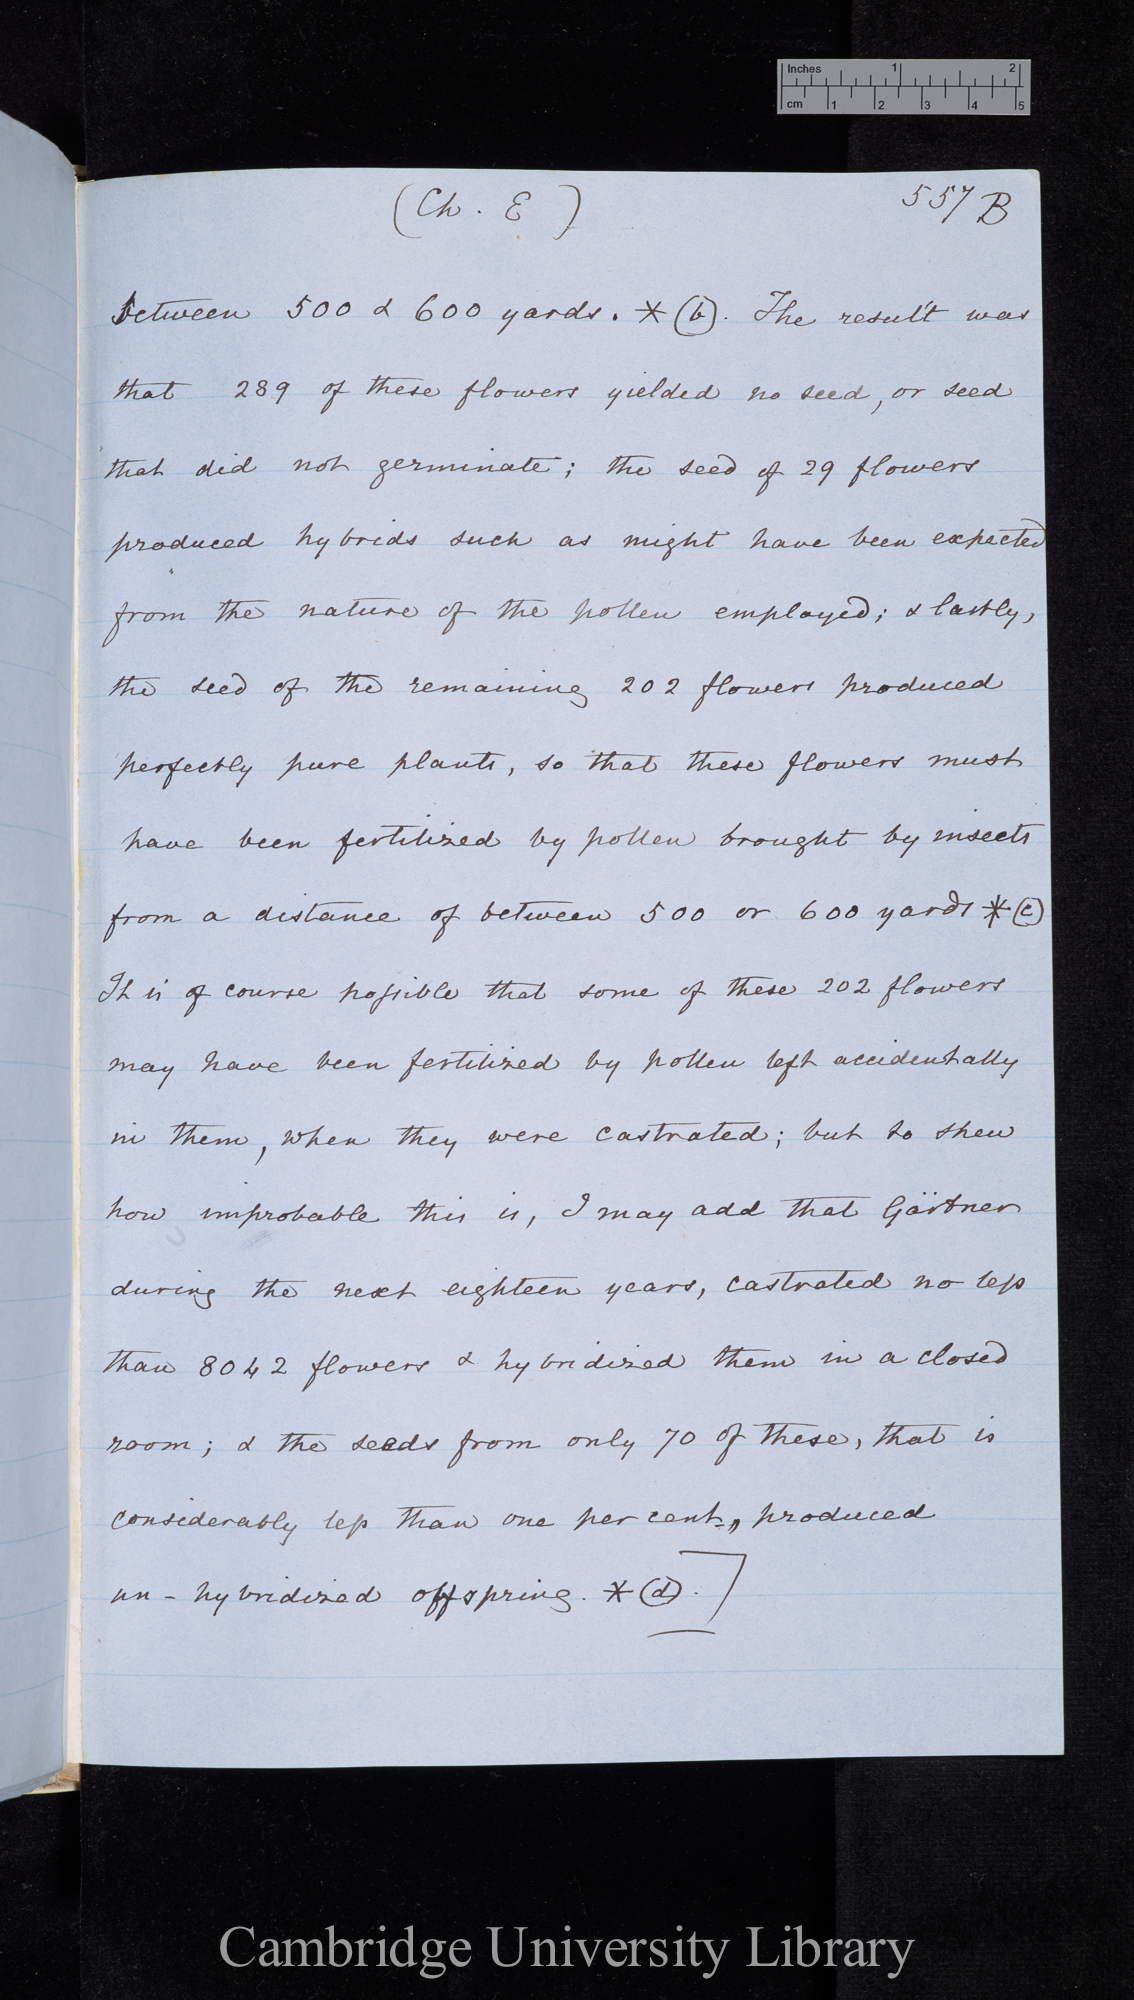 Inches 1 2
cm 1 2 3 4 5
(Ch. E)
557 B
between 500 & 600 yards. * (b). The result was
that 289 of these flowers yielded no seed, or seed
that did not germinate; the seed of 29 flowers
produced hybrids such as might have been expected
from the nature of the pollen employed; & lastly,
the seed of the remaining 202 flowers produced
perfectly pure plants, so that these flowers must
have been fertilized by pollen brought by insects
from a distance of between 500 or 600 yards * (c)
It is of course possible that some of these 202 flowers
may have been fertilized by pollen left accidentally
in them, when they were castrated; but to shew
how improbable this is, I may add that Gärtner
during the next eighteen years, castrated no less
than 8042 flowers & hybridized them in a closed
room; & the seeds from only 70 of these, that is
considerably less than one per cent., produced
un-hybridized offspring. * (d).]
Cambridge University Library